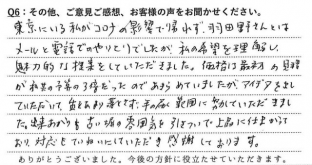 Q6：その他、ご意見ご感想、お客様の声をお聞かせください。
東京にいる私がコロナの影響で帰れず、羽田野さんとは
メールと電話でのやりとりでしたが、私の希望を理解し、
魅力的な提案をしていただきました。価格は最初の見積
が私共の予算の3倍だったのであきらめていましたが、アイデアを出
していただいて、質を落とさず、手の届く範囲に収めていただきまし
た。出来あがりも古い蔵の雰囲気を保ちつつ上品に仕上がって
おり、対応もていねいにしていただき感謝しております。
ありがとうございました。今後の方針に役立たせていただきます。